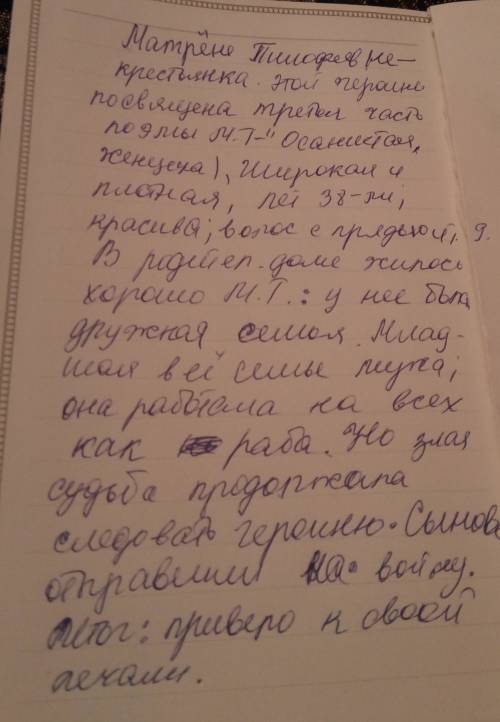 Матрёне Тимофеевне-
крестьянка. Этой героине
посвящена третья часть
поэмы М.Т-"Осанистая,
женщина), Широкая и
плотная, лет 38-ми,
красива; волос с прядью
В родител. доме жилось
хорошо М.Т.: у нее была
дружная семья. Млад-
шая в ей семье мужа;
она работала на всех
как раба. Но злая
судьба продолжала
следовать героиню. Сынове
отправили на войну.
Итог: приверо к своей
печали.